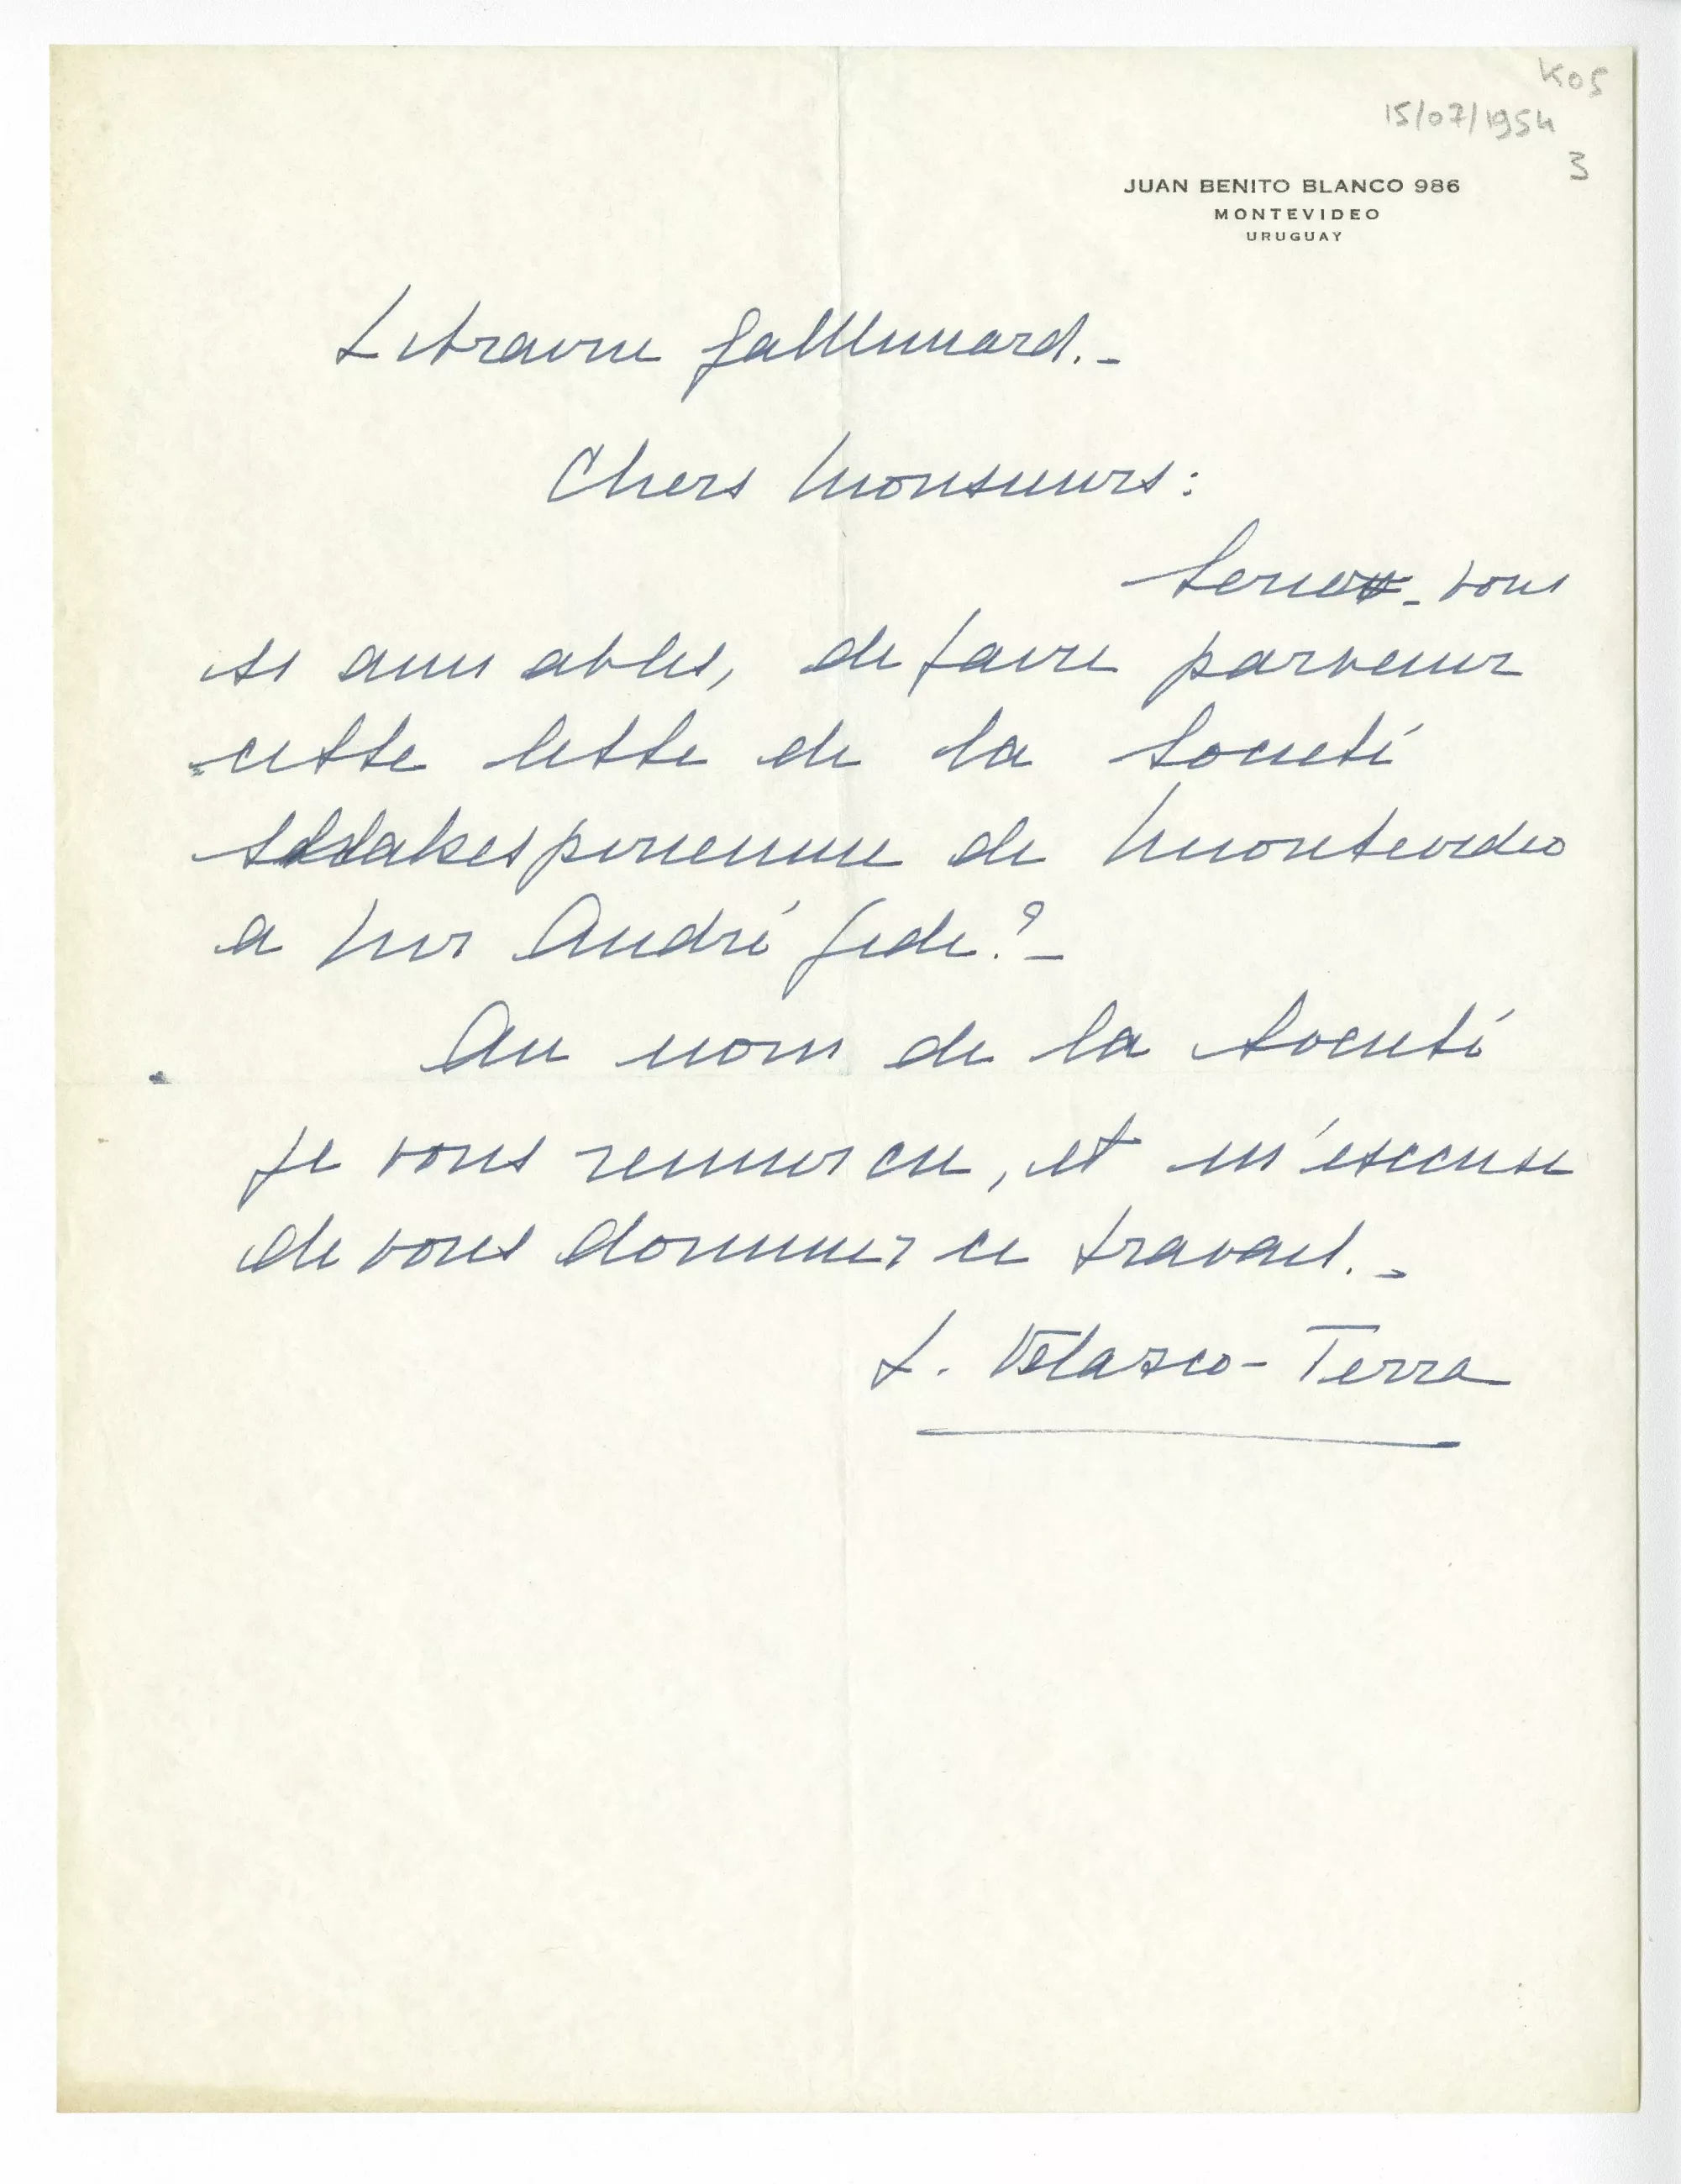 K05
15/07/1954
3
JUAN BENITO BLANCO 986
MONTEVIDEO
URUGUAY
Librairie Gallimard.-
Chers Monsieurs:
Seriez-vous
si aimables, de faire parvenir
cette lettre de la Societé
Shakespirienne de Montevideo
a Mr André Gide?-
Au nom de la Societé
je vous remercie, et m'excuse
de vous donner ce travail.-
L. Velasco-Terra